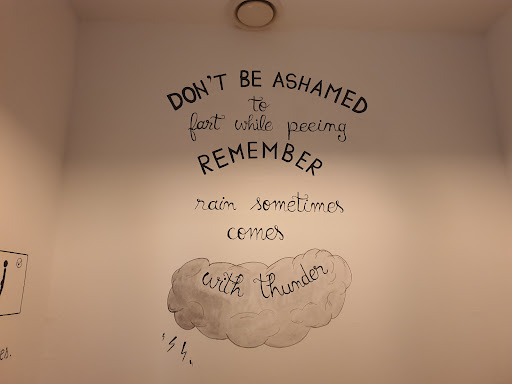 DON'T BE ASHAMED
to
fart while peeing
REMEMBER
rain sometimes
comes
with thunder
es.